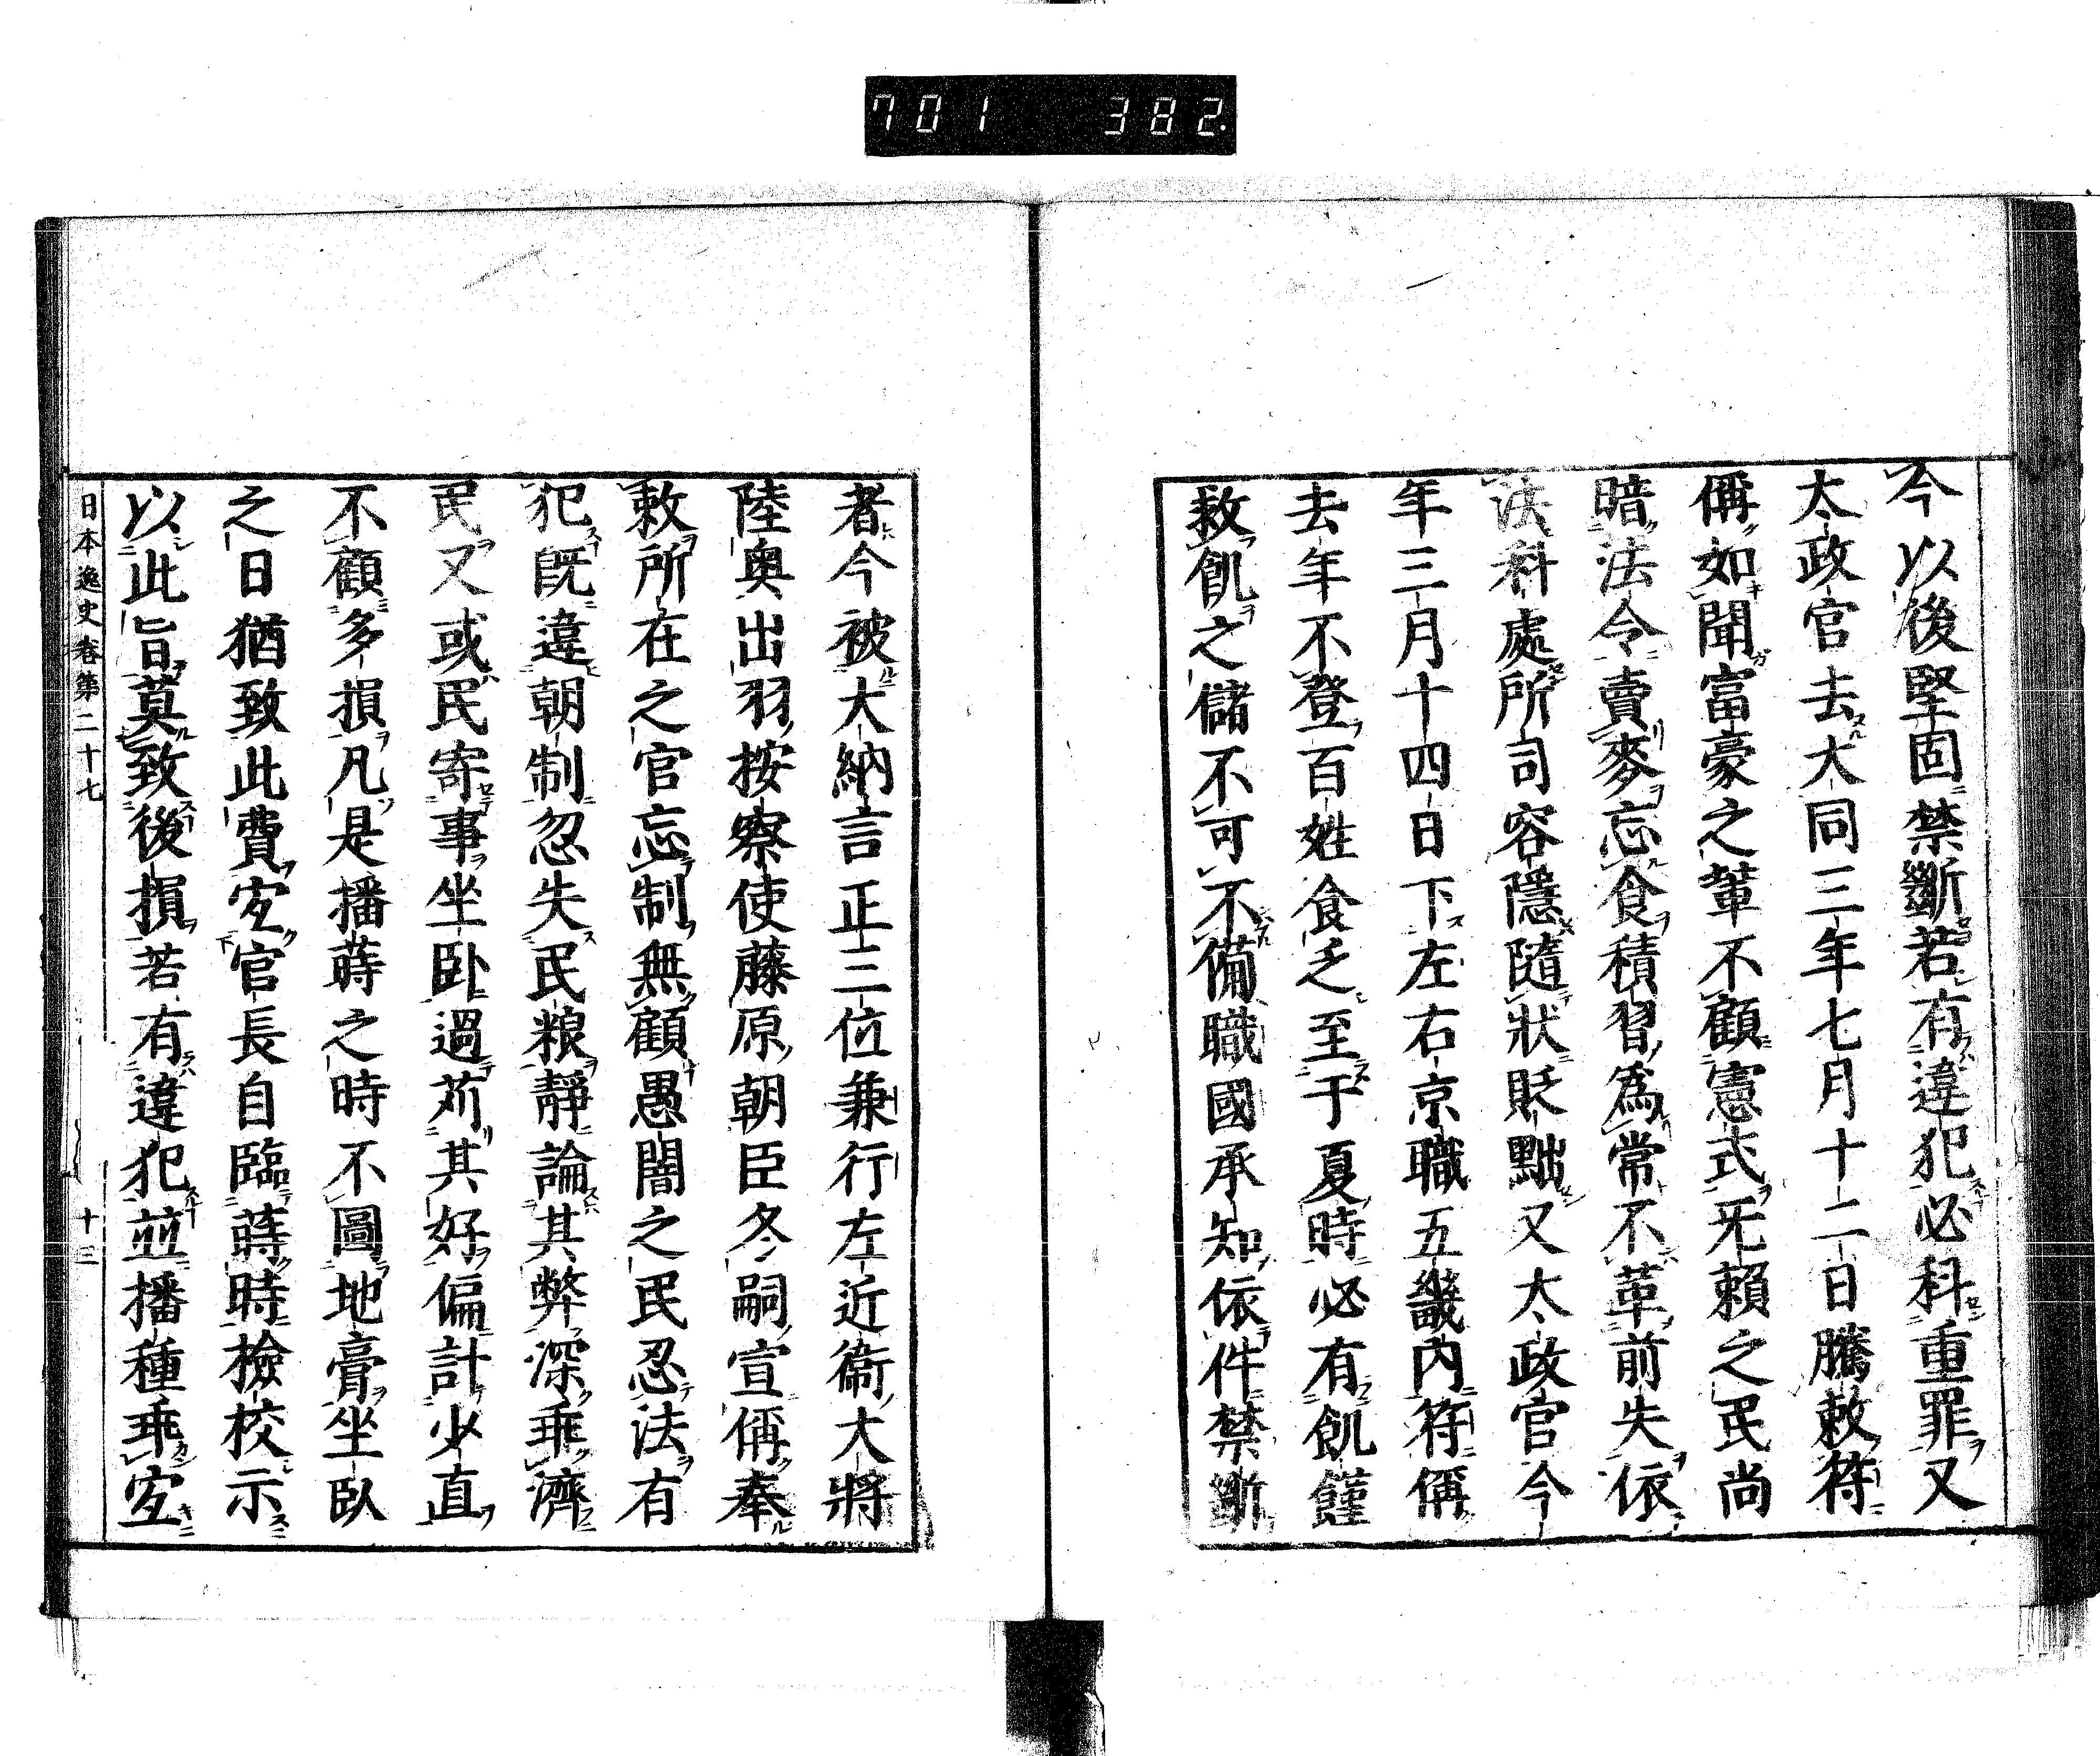 701 382
今以後堅固禁斷若有違犯必科重罪又
太政官去大同三年七月十二日騰敕符
偁如聞富豪之輩不顧憲式旡賴之民尚
暗法令賣麥忘食積習爲常不革前失依
法科處所司容隱隨狀貶黜又太政官今
年三月十四日下左右京職五畿內符偁
去年不登百姓食乏至于夏時必有飢饉
救飢之儲不可不備職國承知依件禁斷
者今被大納言正三位兼行左近衞大將
陸奧出羽按察使藤原朝臣冬嗣宣偁奉
敕所在之官忘制無顧愚闇之民忍法有
犯旣違朝制忽失民粮靜論其弊深乖濟
民又或民寄事坐臥過苅其好偏計少直
不顧多損凡是播蒔之時不圖地膏坐臥
之日猶致此費宐官長自臨蒔時檢校示
以此旨莫致後損若有違犯並播種乖宐
日本逸史卷第二十七 十三